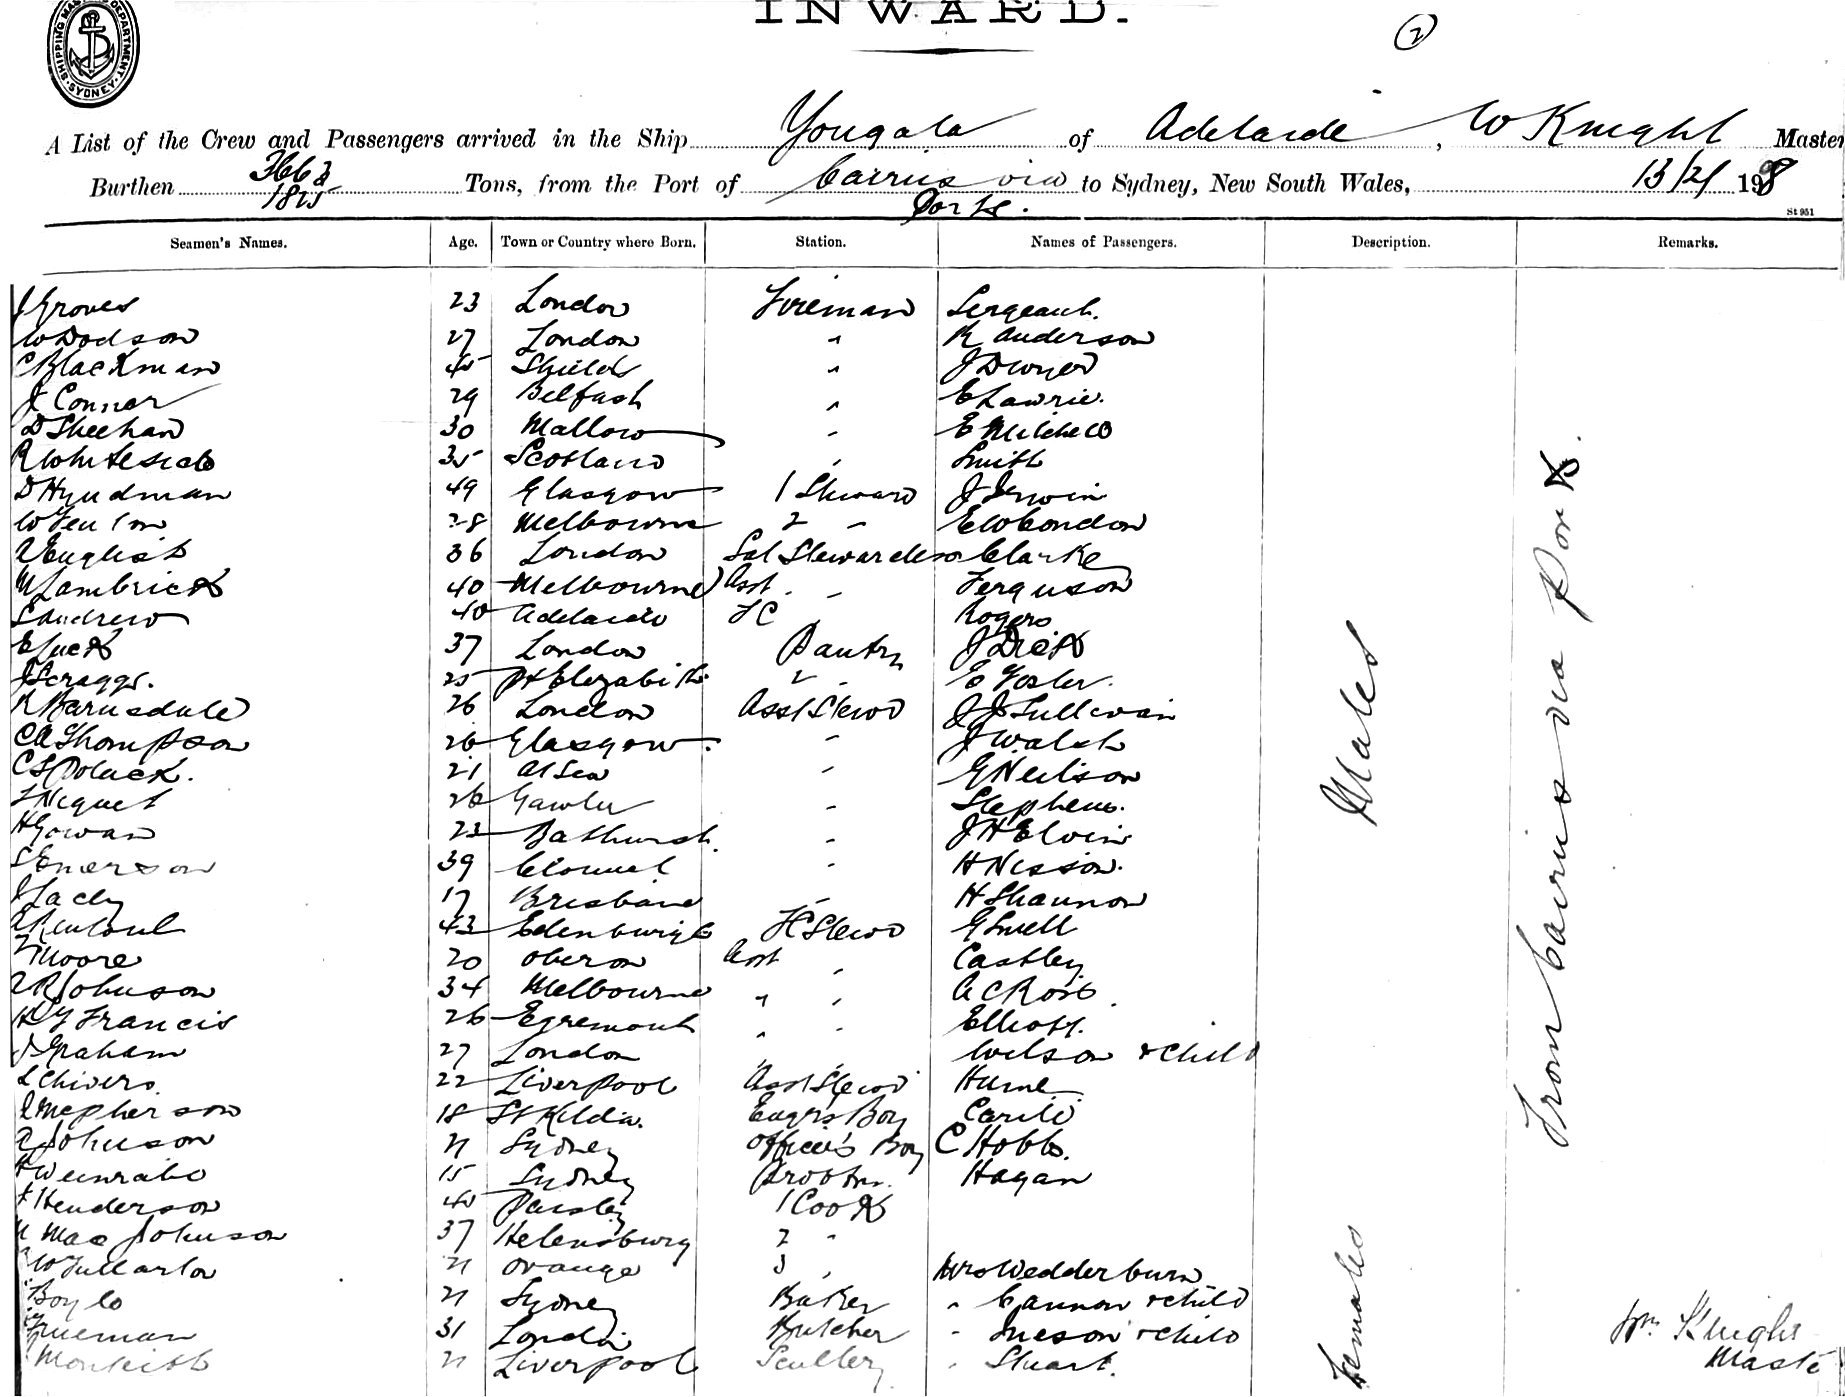 SHIPPING MASTER'S DEPARTMENT
SYDNEY
INWARD.
2
A List of the Crew and Passengers arrived in the Ship Yongala of Adelaide, W Knight Master
Burthen 3663 Tons, from the Port of Cairns via to Sydney, New South Wales, 13/2/ 1908
1825 Ports.
St 951
Seamen's Names. Age. Town or Country where Born. Station. Names of Passengers. Description. Remarks.
J Groves 23 London Fireman Sergeant.
W Dodson 27 London " R Anderson
C Blackman 45 Shields " J Dwyer
J Connor 29 Belfast " E Lawrie.
D Sheehan 30 Mallow " E Mitchell
R Whiteside 35 Scotland " Smith
D Hyndman 49 Glasgow 1 Steward J Irwin
W Fenton 28 Melbourne 2 " E W Condon
A English 36 London Sal Stewardess Clarke
M Lambrick 40 Melbourne Asst. " Ferguson
S Andrew 40 Adelaide FC Rogers
E Luck 37 London Pantry J Dick
J Scraggs. 25 Pt Elizabeth 2 " E Foster.
R Barnsdale 26 London Asst Stewd J J Sullivan
C A Thompson 26 Glasgow. " J Walsh
C S Polack. 21 At Sea " G Neilson
26 Gawler " Stephens.
H Gowan 23 Bathurst. " J H Elvin
S Emerson 39 " H Nisson.
J Lacey 17 Brisbane " H Shannon
43 Edenburgh FC Stewd G Smell
T Moore 20 Oberon Asst " Castley
A R Johnson 34 Melbourne " " A C Ross.
H G Francis 26 Egremont " " Elliott.
J Graham 27 London " " Wilson & Child
L Chivers. 22 Liverpool Asst Stewd Hume
A McPherson 18 St Kilda. Engrs Boy
A Johnson 21 Sydney Officer's Boy C Hobbs.
H Weinrabe 15 Sydney Hagan
Henderson 40 Paisley 1 Cook
Mac Johnson 37 Helensburg 2 "
W Fullarton 21 Orange 3 " Mrs Wedderburn
Boyle 21 Sydney Baker " Cannon & child
Trueman 31 London Butcher " Ineson & child
Monteith 21 Liverpool Scullery " Stuart.
Males
Females
From Cairns via Ports.
Wm Knight
Master